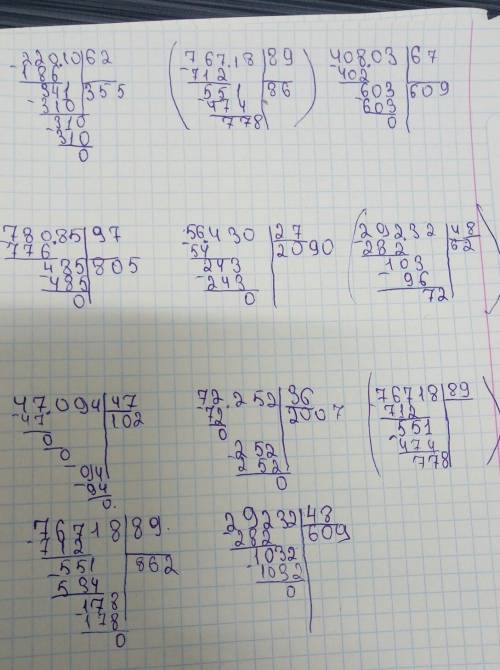 220.10 62
186
341 355
310
310
310
0
767.18 89
712
551 86
474
778
408.03 67
402
603 609
603
0
780.85 97
776
485 805
485
0
56.430 27
54 2090
243
243
0
29232 48
282 62
103
96
72
47.094 47
47 102
0
0
94
0
72.252 36
72 2007
0
252
252
0
76718 89
712
551
474
778
76718 89
712
551 862
534
178
178
0
29232 48
282 609
1032
1032
0